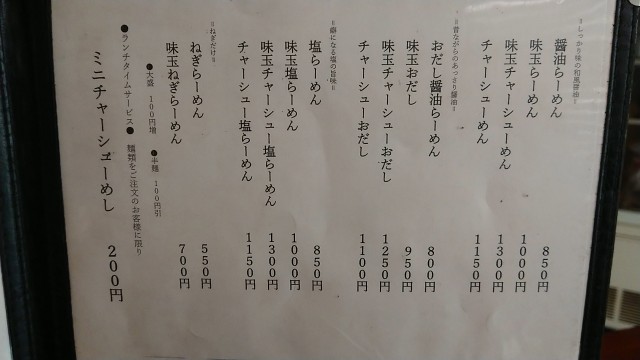 =しっかり味の和風醤油=
醤油らーめん 850円
味玉らーめん 1000円
味玉チャーシューめん 1300円
チャーシューめん 1150円
=昔ながらのあっさり醤油=
おだし醤油らーめん 800円
味玉おだし 950円
味玉チャーシューおだし 1250円
チャーシューおだし 1100円
=癖になる塩の旨味=
塩らーめん 850円
味玉塩らーめん 1000円
味玉チャーシュー塩らーめん 1300円
チャーシュー塩らーめん 1150円
=ねぎだけ=
ねぎらーめん 550円
味玉ねぎらーめん 700円
●大盛 100円増 ●半麺 100円引
●ランチタイムサービス● 麺類をご注文のお客様に限り
ミニチャーシューめし 200円